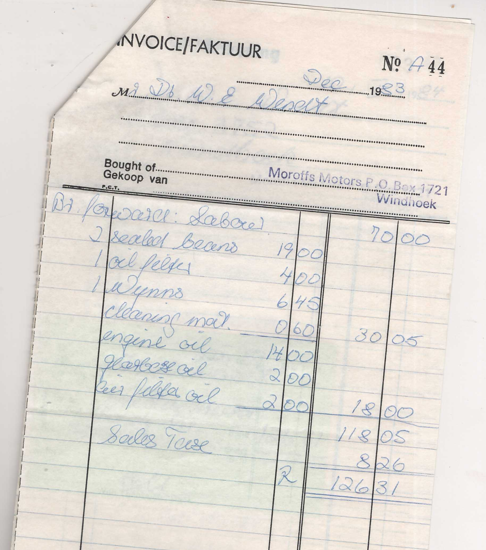 INVOICE/FAKTUUR
No A 44
Dec 1983
M Dr W. E
Bought of
Gekoop van
Moroffs Motors P.O. Box 1721
Windhoek
Bt. forward: Labour 70 00
2 sealed beams 19 00
1 oil filter 4 00
1 Wynns 6 45
cleaning mat. 0 60 30 05
engine oil 14 00
gearbox oil 2 00
filter oil 2 00 18 00
118 05
Sales Tax 8 26
R 126 31